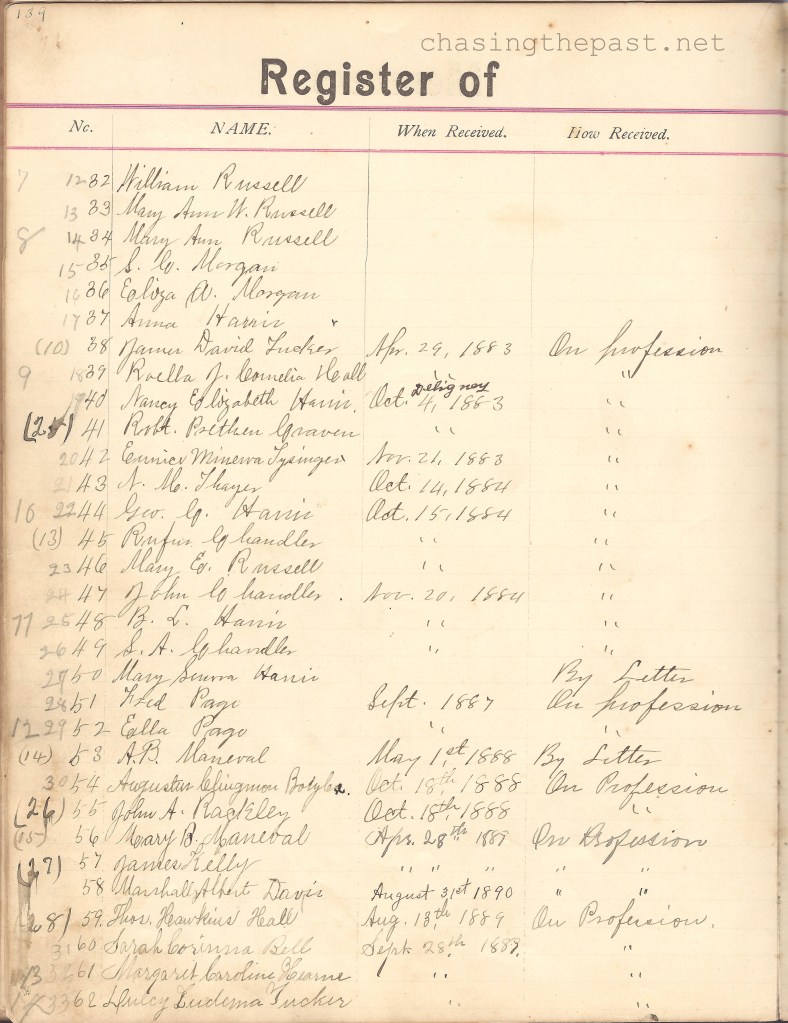 139
chasingthepast.net
Register of
No. NAME. When Received. How Received.
7 12 32 William Russell
13 33 Mary Ann W. Russell
8 14 34 Mary Ann Russell
15 35 S. C. Morgan
16 36 Eliza A. Morgan
17 37 Anna Harris
(10) 38 James David Tucker Apr. 29, 1883 On profession
9 18 39 J. Cornelia Hall " "
19 40 Nancy Elizabeth Harris. Oct. 4, 1883 "
41 Robt. Craven " "
20 42 Eunice Minerva Tysinger Nov. 21, 1883 "
21 43 N. M. Thayer Oct. 14, 1884 "
10 22 44 Geo. C. Harris Oct. 15, 1884 "
(13) 45 Rufus Chandler " "
23 46 Mary E. Russell " "
24 47 John Chandler. Nov. 20, 1884 "
11 25 48 B. L. Harris " "
26 49 S. A. Chandler " "
27 50 Mary Harris By Letter
28 51 Fred Page Sept. 1887 On profession
12 29 52 Ella Page " "
(14) 53 A. B. Maneval May 1st, 1888 By Letter
30 54 Augustus Oct. 18th, 1888 On Profession
(26) 55 John A. Rackley Oct. 18th, 1888 "
(15) 56 Mary B. Maneval Apr. 28th 1889 On Profession
(27) 57 James Kelly " " " " "
58 Marshall Albert Davis August 31st 1890 " "
(28) 59. Thos. Hawkins Hall Aug. 13th, 1889 On Profession.
31 60 Sarah Corinna Bell Sept. 28th, 1889. "
13 32 61 Margaret Caroline Hearne " "
33 62 Dulcy Ludema Tucker " "